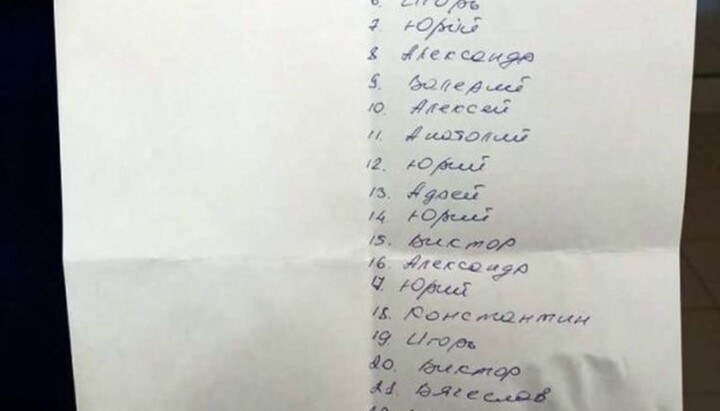 6. Игорь
7. Юрий
8 Александр
9. Валерий
10. Алексей
11. Анатолий
12. Юрий
13. Адрей
14. Юрий
15. Виктор
16. Александр
17. Юрий
18. Константин
19. Игорь
20. Виктор
21. Вячеслав